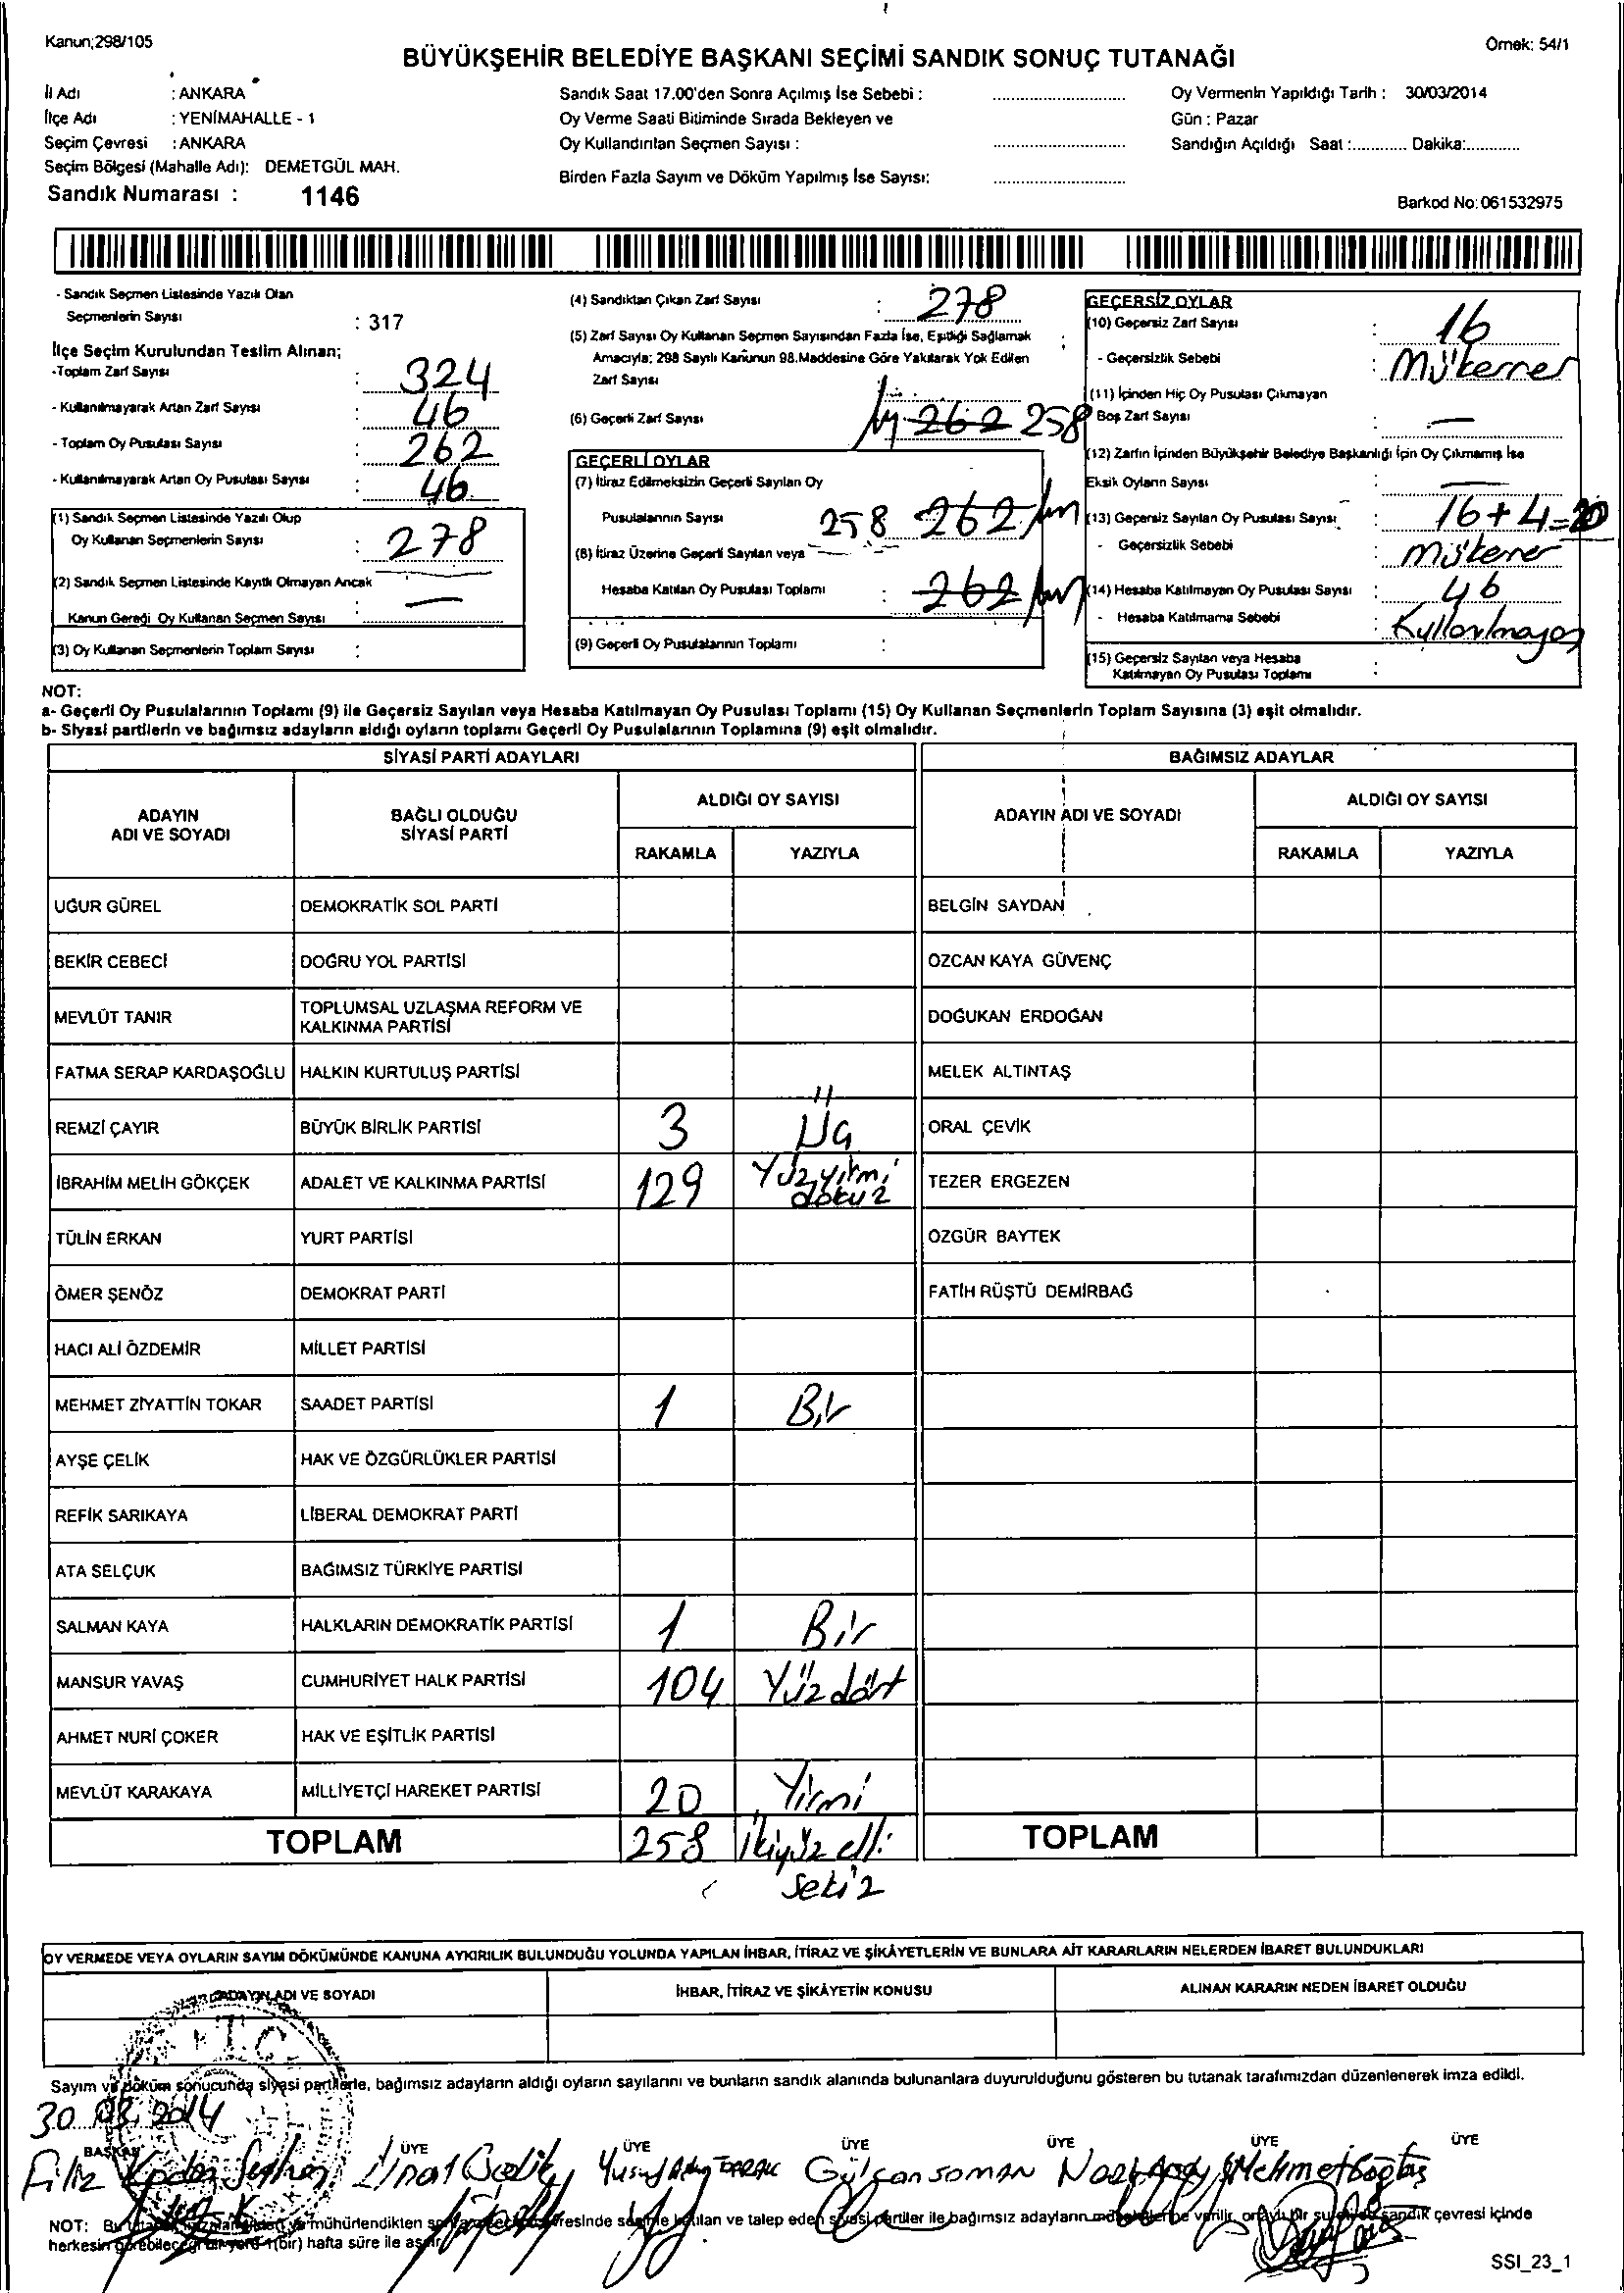 Kanun;298/105
Örnek: 54/1
BÜYÜKŞEHİR BELEDİYE BAŞKANI SEÇİMİ SANDIK SONUÇ TUTANAĞI
İl Adı : ANKARA
İlçe Adı : YENİMAHALLE - 1
Seçim Çevresi : ANKARA
Seçim Bölgesi (Mahalle Adı): DEMETGÜL MAH.
Sandık Numarası : 1146
Sandık Saat 17.00'den Sonra Açılmış İse Sebebi :
Oy Verme Saati Bitiminde Sırada Bekleyen ve
Oy Kullandırılan Seçmen Sayısı :
Birden Fazla Sayım ve Döküm Yapılmış İse Sayısı:
Oy Vermenin Yapıldığı Tarih : 30/03/2014
Gün : Pazar
Sandığın Açıldığı Saat :............ Dakika:............
Barkod No:061532975
- Sandık Seçmen Listesinde Yazılı Olan
Seçmenlerin Sayısı : 317
İlçe Seçim Kurulundan Teslim Alınan;
-Toplam Zarf Sayısı : 324
- Kullanılmayarak Artan Zarf Sayısı : 46
- Toplam Oy Pusulası Sayısı : 262
- Kullanılmayarak Artan Oy Pusulası Sayısı : 46
(1) Sandık Seçmen Listesinde Yazılı Olup
Oy Kullanan Seçmenlerin Sayısı : 278
(2) Sandık Seçmen Listesinde Kayıtlı Olmayan Ancak
Kanun Gereği Oy Kullanan Seçmen Sayısı : —
(3) Oy Kullanan Seçmenlerin Toplam Sayısı :
(4) Sandıktan Çıkan Zarf Sayısı : 278
(5) Zarf Sayısı Oy Kullanan Seçmen Sayısından Fazla İse, Eşitliği Sağlamak :
Amacıyla; 298 Sayılı Kanunun 98.Maddesine Göre Yakılarak Yok Edilen
Zarf Sayısı
(6) Geçerli Zarf Sayısı 262 258
GEÇERLİ OYLAR
(7) İtiraz Edilmeksizin Geçerli Sayılan Oy
Pusulalarının Sayısı 258 262
(8) İtiraz Üzerine Geçerli Sayılan veya
Hesaba Katılan Oy Pusulası Toplamı : 262
(9) Geçerli Oy Pusulalarının Toplamı :
GEÇERSİZ OYLAR
(10) Geçersiz Zarf Sayısı : 16
- Geçersizlik Sebebi : Mükerrer
(11) İçinden Hiç Oy Pusulası Çıkmayan
Boş Zarf Sayısı : —
(12) Zarfın İçinden Büyükşehir Belediye Başkanlığı İçin Oy Çıkmamış İse
Eksik Oyların Sayısı : —
(13) Geçersiz Sayılan Oy Pusulası Sayısı : 16+4=20
- Geçersizlik Sebebi : mükerrer
(14) Hesaba Katılmayan Oy Pusulası Sayısı : 46
- Hesaba Katılmama Sebebi : Kullanılmayan
(15) Geçersiz Sayılan veya Hesaba
Katılmayan Oy Pusulası Toplamı :
NOT:
a- Geçerli Oy Pusulalarının Toplamı (9) ile Geçersiz Sayılan veya Hesaba Katılmayan Oy Pusulası Toplamı (15) Oy Kullanan Seçmenlerin Toplam Sayısına (3) eşit olmalıdır.
b- Siyasi partilerin ve bağımsız adayların aldığı oyların toplamı Geçerli Oy Pusulalarının Toplamına (9) eşit olmalıdır.
SİYASİ PARTİ ADAYLARI BAĞIMSIZ ADAYLAR
ADAYIN ADI VE SOYADI BAĞLI OLDUĞU SİYASİ PARTİ ALDIĞI OY SAYISI ADAYIN ADI VE SOYADI ALDIĞI OY SAYISI
RAKAMLA YAZIYLA RAKAMLA YAZIYLA
UĞUR GÜREL DEMOKRATİK SOL PARTİ BELGİN SAYDAN
BEKİR CEBECİ DOĞRU YOL PARTİSİ ÖZCAN KAYA GÜVENÇ
MEVLÜT TANIR TOPLUMSAL UZLAŞMA REFORM VE KALKINMA PARTİSİ DOĞUKAN ERDOĞAN
FATMA SERAP KARDAŞOĞLU HALKIN KURTULUŞ PARTİSİ MELEK ALTINTAŞ
REMZİ ÇAYIR BÜYÜK BİRLİK PARTİSİ 3 Üç ORAL ÇEVİK
İBRAHİM MELİH GÖKÇEK ADALET VE KALKINMA PARTİSİ 129 Yüzyirmi dokuz TEZER ERGEZEN
TÜLİN ERKAN YURT PARTİSİ ÖZGÜR BAYTEK
ÖMER ŞENÖZ DEMOKRAT PARTİ FATİH RÜŞTÜ DEMİRBAĞ
HACI ALİ ÖZDEMİR MİLLET PARTİSİ
MEHMET ZİYATTİN TOKAR SAADET PARTİSİ 1 Bir
AYŞE ÇELİK HAK VE ÖZGÜRLÜKLER PARTİSİ
REFİK SARIKAYA LİBERAL DEMOKRAT PARTİ
ATA SELÇUK BAĞIMSIZ TÜRKİYE PARTİSİ
SALMAN KAYA HALKLARIN DEMOKRATİK PARTİSİ 1 Bir
MANSUR YAVAŞ CUMHURİYET HALK PARTİSİ 104 Yüzdört
AHMET NURİ ÇOKER HAK VE EŞİTLİK PARTİSİ
MEVLÜT KARAKAYA MİLLİYETÇİ HAREKET PARTİSİ 20 Yirmi
TOPLAM 258 ikiyüz elli sekiz TOPLAM
OY VERMEDE VEYA OYLARIN SAYIM DÖKÜMÜNDE KANUNA AYKIRILIK BULUNDUĞU YOLUNDA YAPILAN İHBAR, İTİRAZ VE ŞİKÂYETLERİN VE BUNLARA AİT KARARLARIN NELERDEN İBARET BULUNDUKLARI
ADAYIN ADI VE SOYADI İHBAR, İTİRAZ VE ŞİKÂYETİN KONUSU ALINAN KARARIN NEDEN İBARET OLDUĞU
T.C.
Sayım ve döküm sonucunda siyasi partilerle, bağımsız adayların aldığı oyların sayılarını ve bunların sandık alanında bulunanlara duyurulduğunu gösteren bu tutanak tarafımızdan düzenlenerek imza edildi.
30.03.2014
BAŞKAN ÜYE ÜYE ÜYE ÜYE ÜYE ÜYE
Filiz Yusuf Gülcan Mehmet
NOT: Bu mühürlendikten çevresinde seçime katılan ve talep eden siyasi partiler ile bağımsız adayların verilir, onaylı bir sandık çevresi içinde
herkesin görebileceği bir yere 1(bir) hafta süre ile asılır.
SSI_23_1